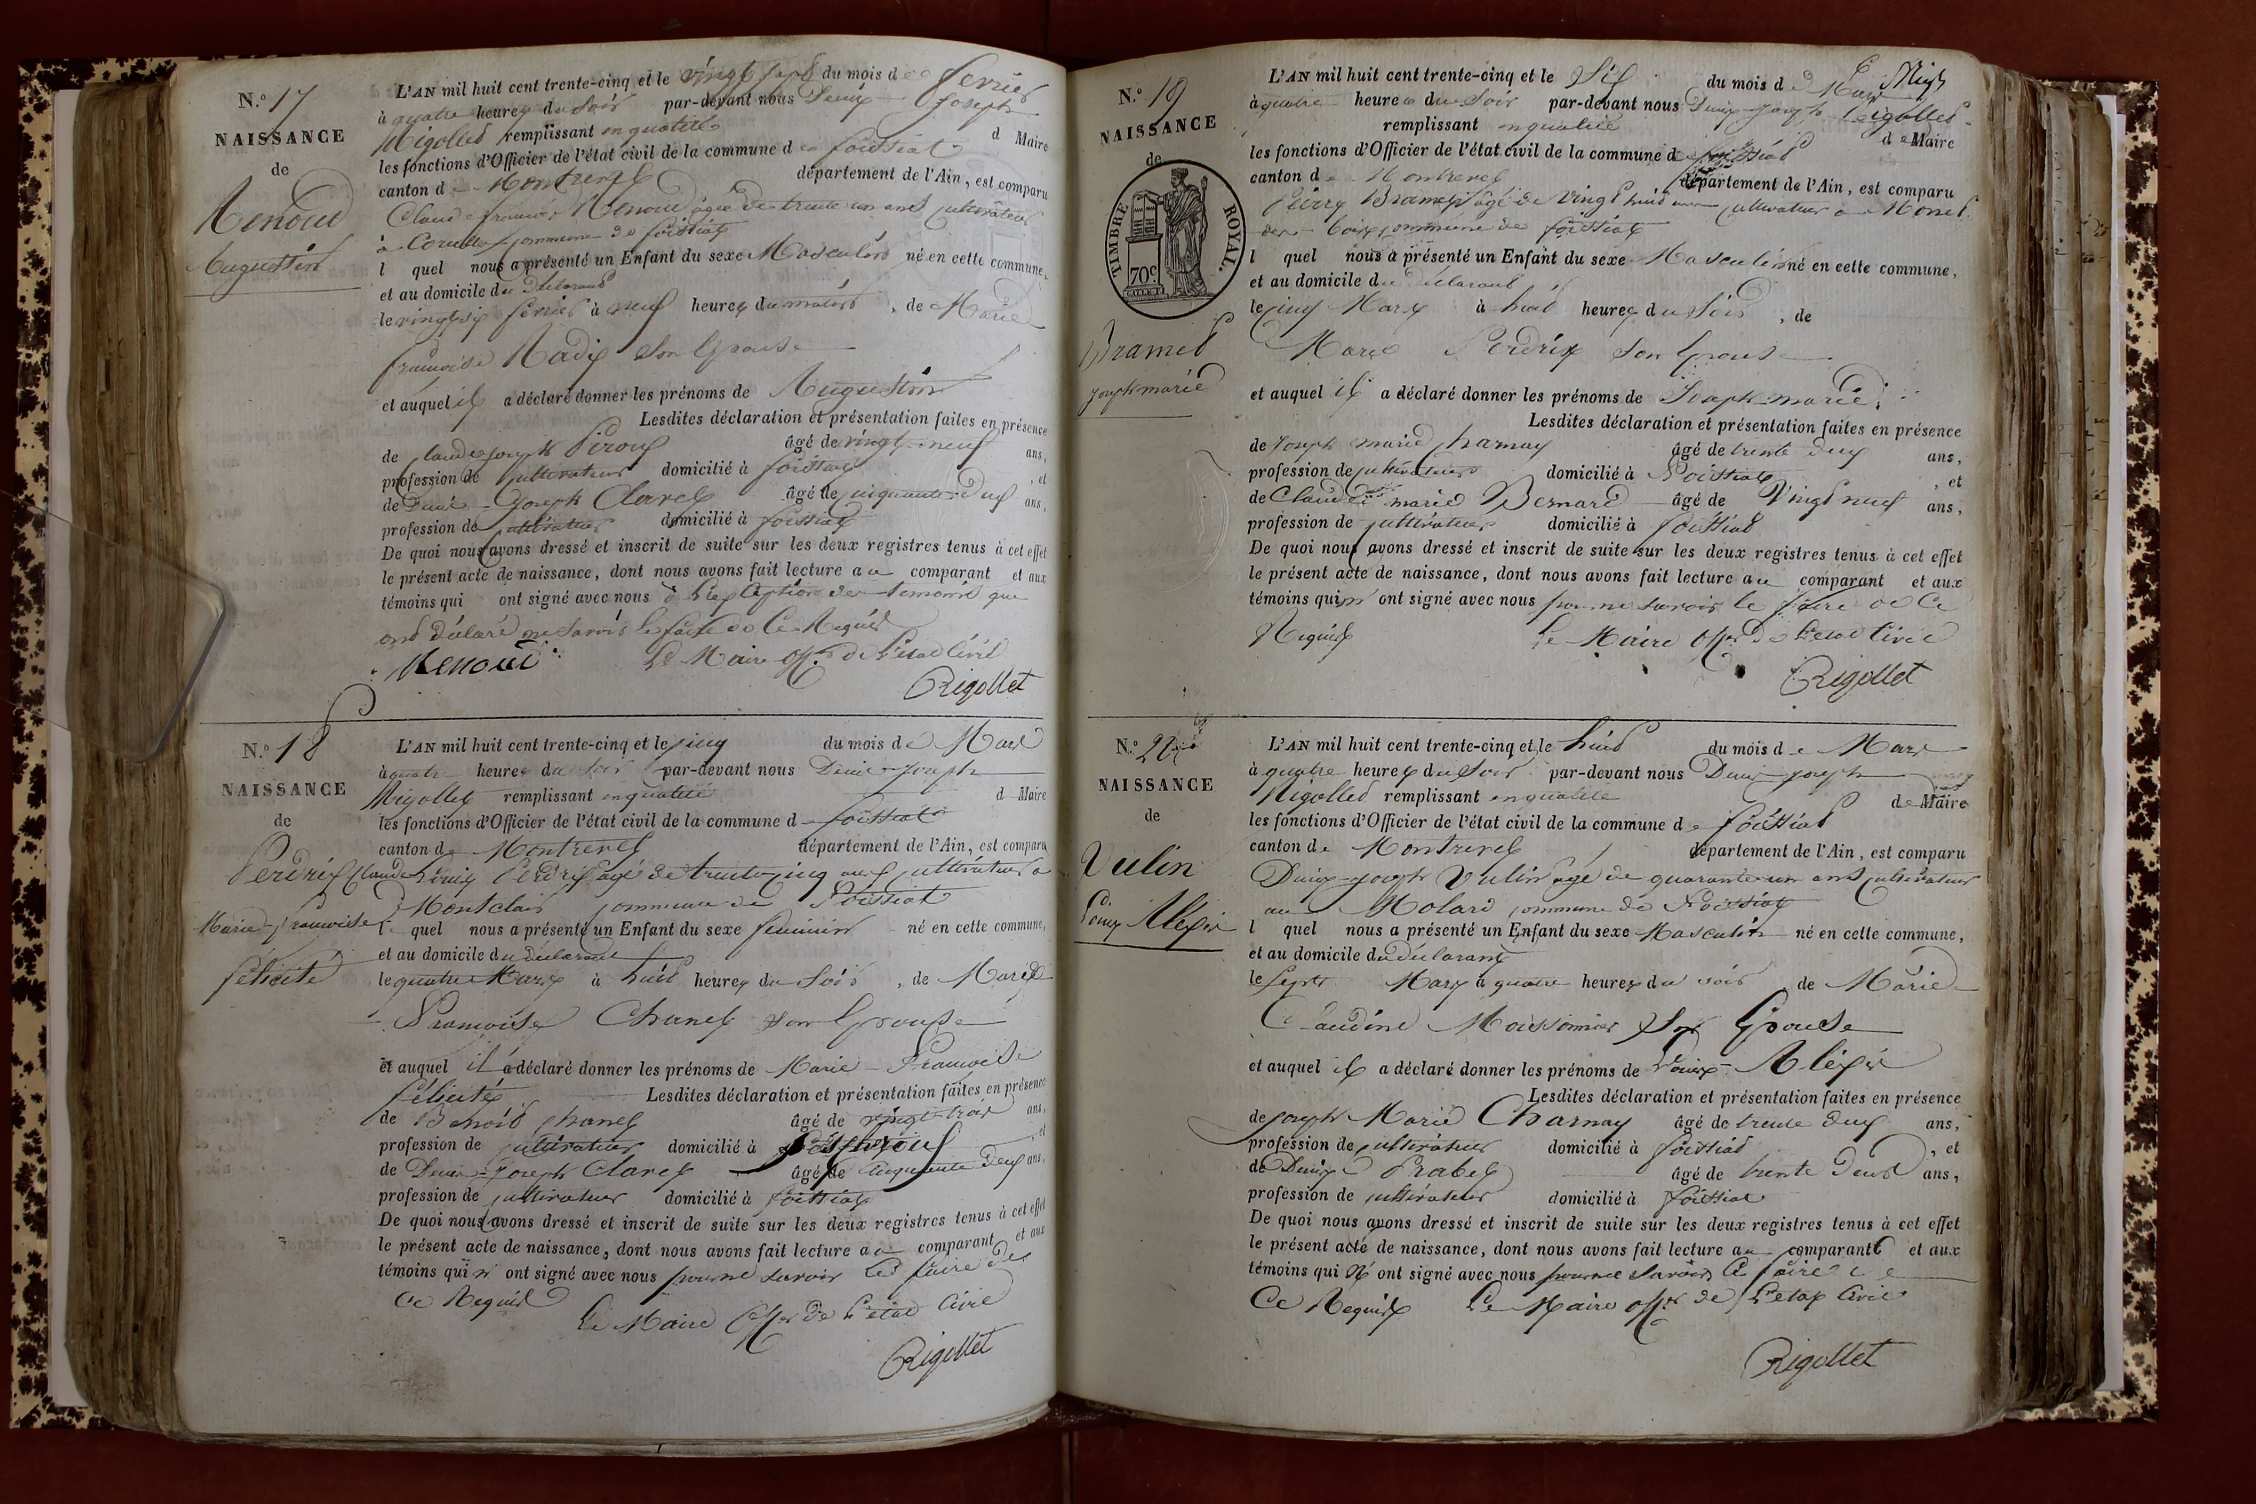 N.° 17
NAISSANCE
de
Renoud
Augustin
L'AN mil huit cent trente-cinq et le vingt sept du mois de fevrier
à quatre heures du soir par-devant nous Denis Joseph
Rigollet remplissant en qualité d Maire
les fonctions d'Officier de l'état civil de la commune de foissiat
canton de Montrevel département de l'Ain, est comparu
Claude françois Renoud âgé de trente un ans cultivateur
à commune de foissiat
l quel nous a présenté un Enfant du sexe Masculin né en cette commune,
et au domicile du déclarant
le vingt six fevrier à neuf heures du matin, de Marie
françoise Nadix son Epouse
et auquel il a déclaré donner les prénoms de Augustin
Lesdites déclaration et présentation faites en présence
de Claude joseph Piroux âgé de vingt-neuf ans,
profession de cultivateur domicilié à foissiat, et
de Denis-Joseph Clarel âgé de cinquante-deux ans,
profession de cultivateur domicilié à foissiat
De quoi nous avons dressé et inscrit de suite sur les deux registres tenus à cet effet
le présent acte de naissance, dont nous avons fait lecture au comparant et aux
témoins qui ont signé avec nous à l'exception des témoins qui
ont déclaré ne savoir le faire de ce Requis
Renoud Le Maire off.er de l'état Civil
Rigollet
N.° 18
NAISSANCE
de
Perdrix
Marie-françoise
félicité
L'AN mil huit cent trente-cinq et le cinq du mois de Mars
à quatre heures du soir par-devant nous Denis-joseph
Rigollet remplissant en qualité d Maire
les fonctions d'Officier de l'état civil de la commune d foissiat
canton de Montrevel département de l'Ain, est comparu
Claude Louis Perdrix âgé de trente-cinq ans cultivateur à
Montclair commune de foissiat
l quel nous a présenté un Enfant du sexe feminin né en cette commune,
et au domicile du déclarant
le quatre Mars à huit heures du soir, de Marie
françoise Chanel son Epouse
et auquel il a déclaré donner les prénoms de Marie-françoise
félicité Lesdites déclaration et présentation faites en présence
de Benoit Chanel âgé de vingt-trois ans,
profession de cultivateur domicilié à, et
de Denis-Joseph Clarel âgé de cinquante deux ans,
profession de cultivateur domicilié à foissiat
De quoi nous avons dressé et inscrit de suite sur les deux registres tenus à cet effet
le présent acte de naissance, dont nous avons fait lecture au comparant et aux
témoins qui n' ont signé avec nous pour ne savoir le faire de
Ce Requis Le Maire off.er de l'état Civil
Rigollet
N.° 19
NAISSANCE
de
TIMBRE ROYAL.
70c
Bramet
joseph marie
L'AN mil huit cent trente-cinq et le six du mois de Mars
à quatre heures du soir par-devant nous Denis-joseph Rigollet
remplissant en qualité de Maire
les fonctions d'Officier de l'état civil de la commune de foissiat
canton de Montrevel département de l'Ain, est comparu
Pierre Bramet âgé de vingt huit ans cultivateur à
commune de foissiat
l quel nous a présenté un Enfant du sexe Masculin né en cette commune,
et au domicile du déclarant
le cinq Mars à huit heures du soir, de
Marie Perdrix son Epouse
et auquel il a déclaré donner les prénoms de Joseph-marie
Lesdites déclaration et présentation faites en présence
de Joseph marie Charnay âgé de trente deux ans,
profession de cultivateur domicilié à foissiat, et
de Claude marie Bernard âgé de vingt neuf ans,
profession de cultivateur domicilié à foissiat
De quoi nous avons dressé et inscrit de suite sur les deux registres tenus à cet effet
le présent acte de naissance, dont nous avons fait lecture au comparant et aux
témoins qui n' ont signé avec nous pour ne savoir le faire de Ce
Requis Le Maire off.er de l'état Civil
Rigollet
N.° 20
NAISSANCE
de
Vulin
Louis Alexis
L'AN mil huit cent trente-cinq et le huit du mois de Mars
à quatre heures du soir par-devant nous Denis-joseph
Rigollet remplissant en qualité de Maire
les fonctions d'Officier de l'état civil de la commune de foissiat
canton de Montrevel département de l'Ain, est comparu
Denis-joseph Vulin âgé de quarante un ans cultivateur
au Molard commune de foissiat
l quel nous a présenté un Enfant du sexe Masculin né en cette commune,
et au domicile du déclarant
le sept Mars à quatre heures du soir de Marie
Claudine Moissonnier son Epouse
et auquel il a déclaré donner les prénoms de Louis-Alexis
Lesdites déclaration et présentation faites en présence
de joseph Marie Charnay âgé de trente deux ans,
profession de cultivateur domicilié à foissiat, et
de Denis Brabel âgé de trente deux ans,
profession de cultivateur domicilié à foissiat
De quoi nous avons dressé et inscrit de suite sur les deux registres tenus à cet effet
le présent acte de naissance, dont nous avons fait lecture au comparant et aux
témoins qui n' ont signé avec nous pour ne savoir le faire de
Ce Requis Le Maire off.er de l'état Civil
Rigollet